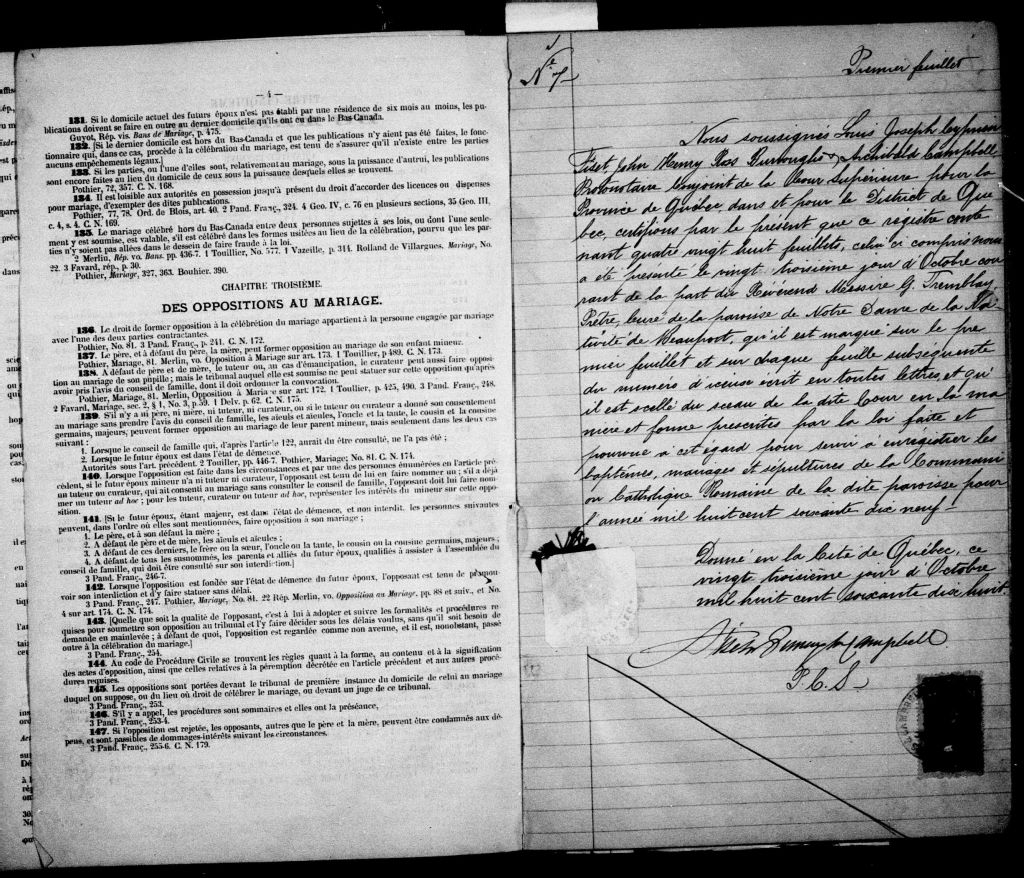 — 4 —
131. Si le domicile actuel des futurs époux n'est pas établi par une résidence de six mois au moins, les pu-
blications doivent se faire en outre au dernier domicile qu'ils ont eu dans le Bas-Canada.
Guyot, Rép. vis. Bans de Mariage, p. 475.
132. [Si le dernier domicile est hors du Bas-Canada et que les publications n'y aient pas été faites, le fonc-
tionnaire qui, dans ce cas, procède à la célébration du mariage, est tenu de s'assurer qu'il n'existe entre les parties
aucuns empêchements légaux.]
133. Si les parties, ou l'une d'elles, sont, relativement au mariage, sous la puissance d'autrui, les publications
sont encore faites au lieu du domicile de ceux sous la puissance desquels elles se trouvent.
Pothier, 72, 357. C. N. 168.
134. Il est loisible aux autorités en possession jusqu'à présent du droit d'accorder des licences ou dispenses
pour mariage, d'exempter des dites publications.
Pothier, 77, 78. Ord. de Blois, art. 40. 2 Pand. Franç., 324. 4 Geo. IV, c. 76 en plusieurs sections, 35 Geo. III,
c. 4, s. 4. C. N. 169.
135. Le mariage célébré hors du Bas-Canada entre deux personnes sujettes à ses lois, ou dont l'une seule-
ment y est soumise, est valable, s'il est célébré dans les formes usitées au lieu de la célébration, pourvu que les par-
ties n'y soient pas allées dans le dessein de faire fraude à la loi.
2 Merlin, Rép. vo. Bans. pp. 436-7. 1 Touillier, No. 577. 1 Vazeille, p. 314. Rolland de Villargues. Mariage, No.
22. 3 Favard, rép., p. 30.
Pothier, Mariage, 327, 363. Bouhier. 390.
CHAPITRE TROISIÈME.
DES OPPOSITIONS AU MARIAGE.
136. Le droit de former opposition à la célébrétion du mariage appartient à la personne engagée par mariage
avec l'une des deux parties contractantes.
Pothier, No. 81. 3 Pand. Franç., p. 241. C. N. 172.
137. Le père, et à défaut du père, la mère, peut former opposition au mariage de son enfant mineur.
Pothier, Mariage, 81. Merlin, vo. Opposition à Mariage sur art. 173. 1 Touillier, p. 489. C. N. 173.
138. A défaut de père et de mère, le tuteur ou, au cas d'émancipation, le curateur peut aussi faire opposi-
tion au mariage de son pupille ; mais le tribunal auquel elle est soumise ne peut statuer sur cette opposition qu'après
avoir pris l'avis du conseil de famille, dont il doit ordonner la convocation.
Pothier, Mariage, 81. Merlin, Opposition à Maria e sur art. 172. 1 Toullier, p. 425, 490. 3 Pand. Franç., 248.
2 Favard, Mariage, sec. 2, § 1, No. 3, p. 59. 1 Delv. p. 62. C. N. 175.
139. S'il n'y a ni père, ni mère, ni tuteur, ni curateur, ou si le tuteur ou curateur a donné son consentement
au mariage sans prendre l'avis du conseil de famille, les aïeuls et aïeules, l'oncle et la tante, le cousin et la cousine
germains, majeurs, peuvent former opposition au mariage de leur parent mineur, mais seulement dans les deux cas
suivant :
1. Lorsque le conseil de famille qui, d'après l'article 122, aurait du être consulté, ne l'a pas été ;
2. Lorsque le futur époux est dans l'état de démence.
Autorités sous l'art. précédent. 2 Touiller, pp. 446-7. Pothier, Mariage; No. 81. C. N. 174.
140. Lorsque l'opposition est faite dans les circonstances et par une des personnes énumérées en l'article pré-
cédent, si le futur époux mineur n'a ni tuteur ni curateur, l'opposant est tenu de lui en faire nommer un ; s'il a déjà
un tuteur ou curateur, qui ait consenti au mariage sans consulter le conseil de famille, l'opposant doit lui faire nom-
mer un tuteur ad hoc ; pour les tuteur, curateur ou tuteur ad hoc, représenter les intérêts du mineur sur cette oppo-
sition.
141. [Si le futur époux, étant majeur, est dans l'état de démence, et non interdit, les personnes suivantes
peuvent, dans l'ordre où elles sont mentionnées, faire opposition à son mariage ;
1. Le père, et à son défaut la mère ;
2. A défaut de père et de mère, les aïeuls et aïeules ;
3. A défaut de ces derniers, le frère ou la sœur, l'oncle ou la tante, le cousin ou la cousine germains, majeurs ;
4. A défaut de tous les susnommés, les parents et alliés du futur époux, qualifiés à assister à l'assemblée du
conseil de famille, qui doit être consulté sur son interdiction.]
3 Pand. Franç., 246-7.
142. Lorsque l'opposition est fondée sur l'état de démence du futur époux, l'opposant est tenu de promou-
voir son interdiction et d'y faire statuer sans délai.
3 Pand. Franç., 247. Pothier, Mariage, No. 81. 22 Rép. Merlin, vo. Opposition au Mariage, pp. 88 et suiv., et No.
4 sur art. 174. C. N. 174.
143. [Quelle que soit la qualité de l'opposant, c'est à lui à adopter et suivre les formalités et procédures re-
quises pour soumettre son opposition au tribunal et l'y faire décider sous les délais voulus, sans qu'il soit besoin de
demande en mainlevée ; à défaut de quoi, l'opposition est regardée comme non avenue, et il est, nonobstant, passé
outre à la célébration du mariage.]
3 Pand. Franç., 254.
144. Au code de Procédure Civile se trouvent les règles quant à la forme, au contenu et à la signification
des actes d'opposition, ainsi que celles relatives à la péremption décrétée en l'article précédent et aux autres procé-
dures requises.
145. Les oppositions sont portées devant le tribunal de première instance du domicile de celui au mariage
duquel on suppose, ou du lieu où droit de célébrer le mariage, ou devant un juge de ce tribunal.
3 Pand. Franç., 253.
146. S'il y a appel, les procédures sont sommaires et elles ont la préséance,
3 Pand. Franç., 253-4.
147. Si l'opposition est rejetée, les opposants, autres que le père et la mère, peuvent être condamnés aux dé-
pens, et sont passibles de dommages-intérêts suivant les circonstances.
3 Pand. Franç., 255-6. C. N. 179.
No 7
Premier feuillet
Nous soussignés Louis Joseph Cyprien
Fiset, John Henry Ros Burroughs & Archibald Campbell
Protonotaire Conjoint de la Cour Supérieure pour la
Province de Québec, dans et pour le District de Qué
bec, certifions par le présent que ce registre conte
nant quatre vingt huit feuillets, celui ci compris nous
a été présenté le vingt troisième jour d'Octobre cou
rant de la part du Révérend Messire G. Tremblay
Prêtre, Curé de la paroisse de Notre Dame de la Na
tivité de Beauport, qu'il est marqué sur le pre
mier feuillet et sur chaque feuille subséquente
du numéro d'iceux écrit en toutes lettres, et qu'
il est scellé du sceau de la dite Cour en la ma
nière et forme prescrites par la loi faite et
pourvue à cet égard pour servir à enregistrer les
baptêmes, mariages et sépultures de la Communi
on Catholique Romaine de la dite paroisse pour
l'année mil huit cent soixante dix neuf —
Donné en la Cité de Québec, ce
vingt troisième jour d'Octobre
mil huit cent soixante dix huit.
Fiset Burroughs Campbell
P. C. S.